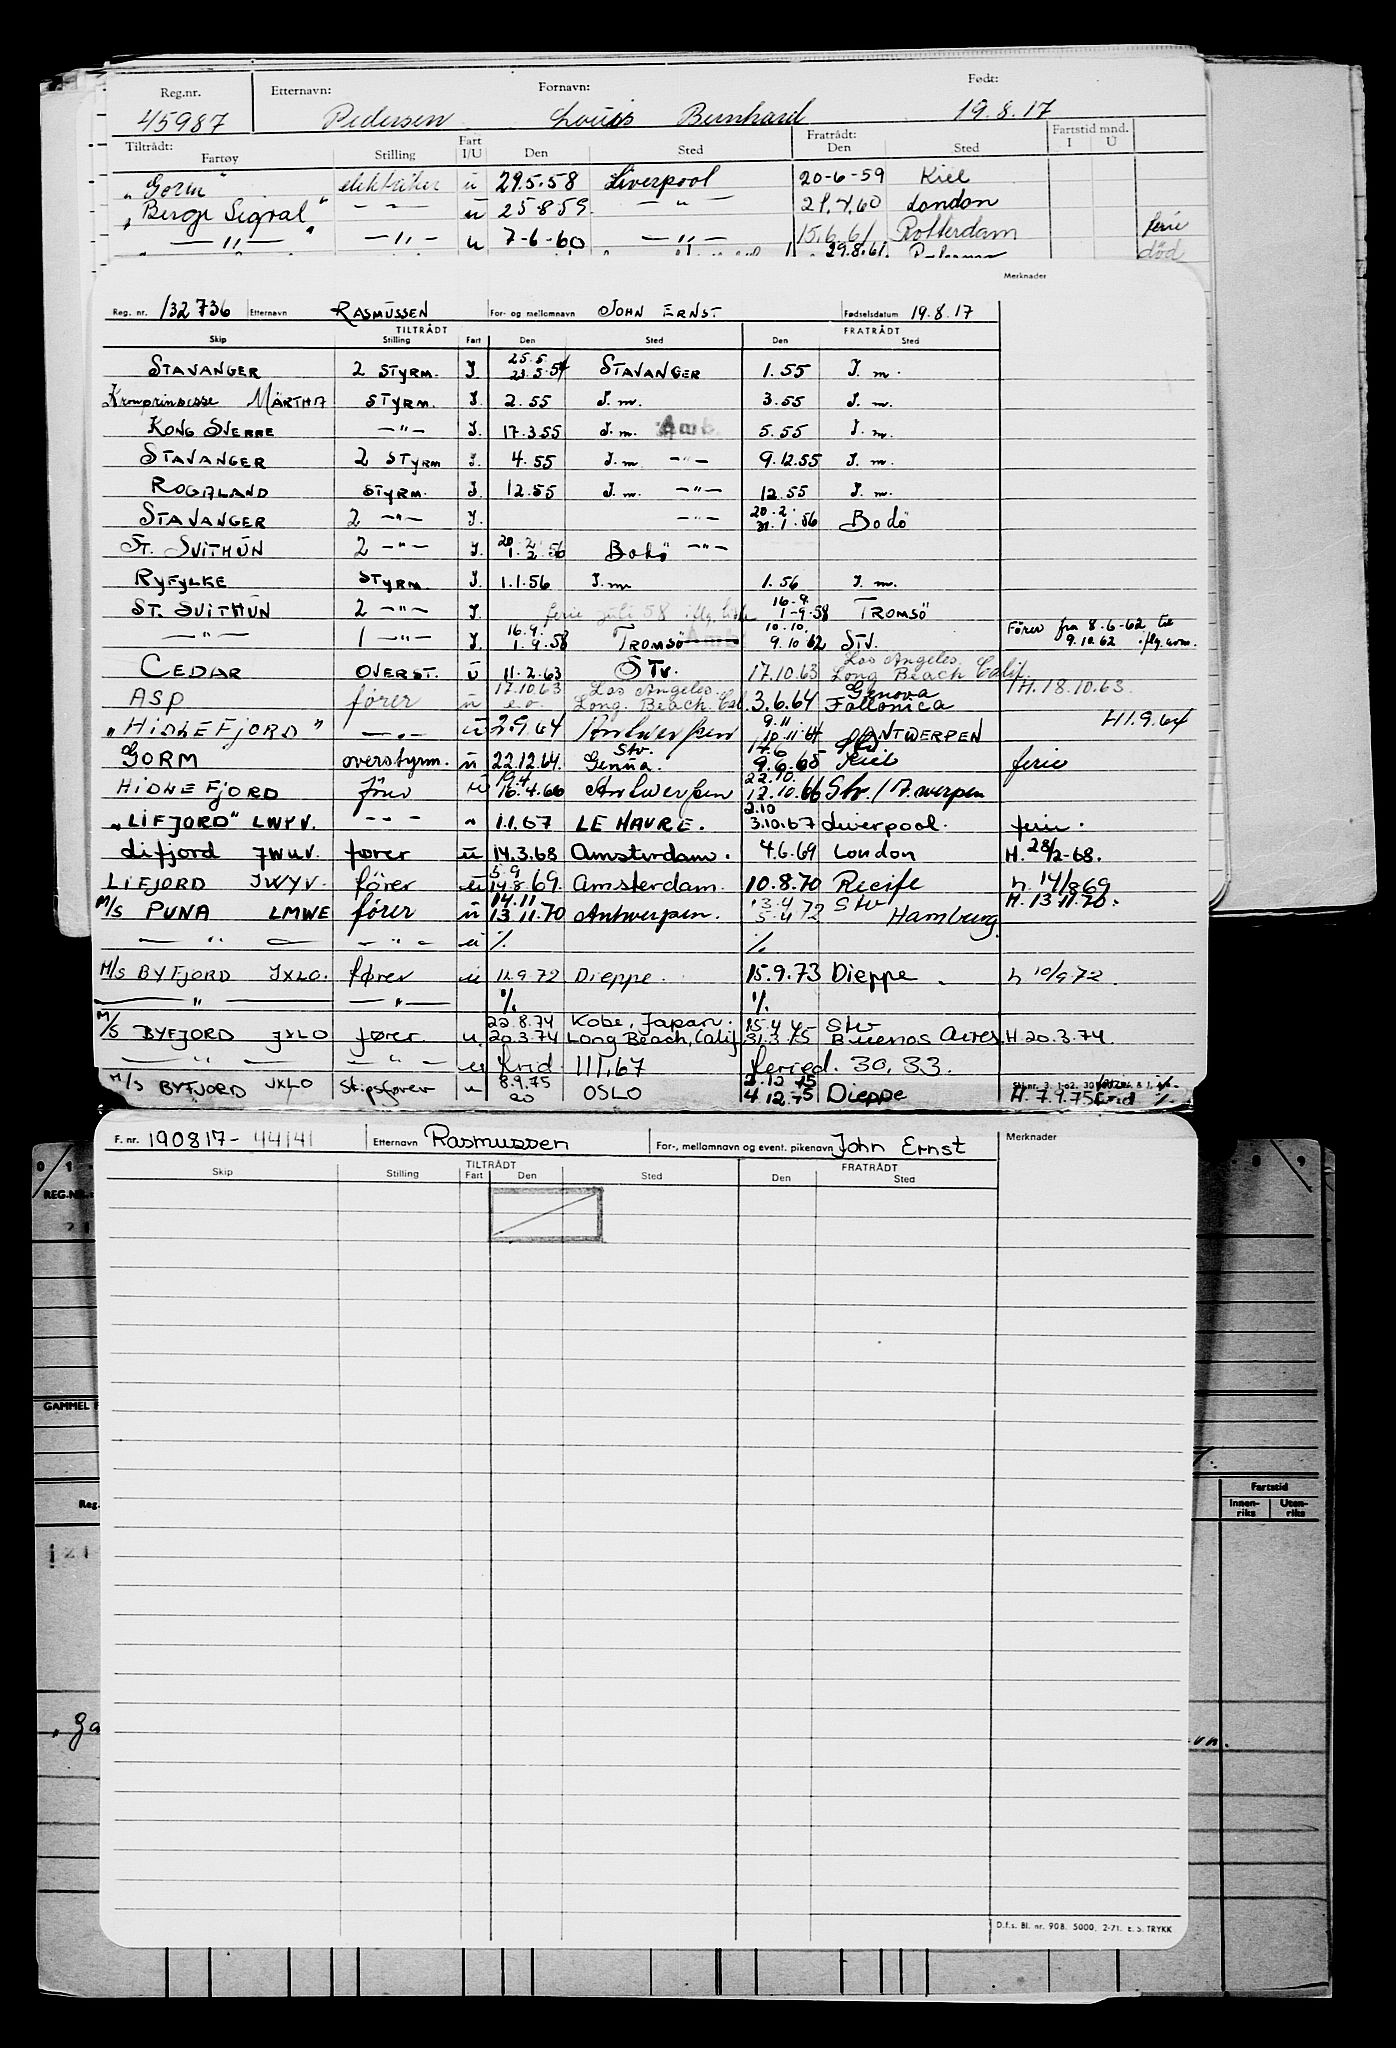 Reg.nr. Etternavn: Fornavn: Født:
45987 Pedersen Louis Bernhard 19.8.17
Tiltrådt: Fart Fratrådt: Fartstid mnd.
Fartøy Stilling I/U Den Sted Den Sted I U
"Gorm" elektriker u 29.5.58 Liverpool 20-6-59 Kiel
"Berge Sigval" — " — u 25 8 59. — " — 21.4.60 London
— " — — " — u 7-6-60 — " — 15.6.61 Rotterdam ferie
29.8.61 död
Merknader
Reg. nr. 132736 Etternavn RASMUSSEN For- og mellomnavn JOHN ERNST Fødselsdatum 19.8.17
TILTRÅDT FRATRÅDT
Skip Stilling Fart Den Sted Den Sted
25.5
STAVANGER 2 STYRM. I. 23.5.54 STAVANGER 1.55 I.m.
Kronprinsesse MÄRTHA STYRM. I. 2.55 I.m. 3.55 I.m.
KONG SVERRE — " — I. 17.3.55 I.m. Amb. 5.55 I.m.
STAVANGER 2 STYRM I. 4.55 I.m. — " — 9.12.55 I.m.
ROGALAND STYRM. I. 12.55 I.m. — " — 12.55 I.m.
20.2.
STAVANGER 2 — " — I. — " — 31.1.56 Bodö
20.2.
ST. SVITHUN 2 — " — I. 1.2.56 Bodö — " —
RYFYLKE STYRM. I. 1.1.56 I.m. 1.56 I.m.
16.9.
ST. SVITHUN 2 — " — I. ferie juli 58 iflg. liste 1-9.58 TROMSÖ
16.9. 10.10. Förer fra 8.6-62 til
— " — 1 — " — I. 1.9.58 TROMSÖ Amb. 9.10.62 STV. 9.10.62 iflg. oom.
Los Angeles.
CEDAR OVERST. u 11.2.63 STV. 17.10.63 Long Beach Calif.
17.10.63 Los Angeles. Genova H.18.10.63.
ASP förer u e.o. Long. Beach. Cal. 3.6.64 Follonica
9.11. H1.9.64
"HIDLEFJORD" — " — u 2.9.64 Antwerpen 10.11.64 ANTWERPEN
Stv. 17.6 Stv
GORM overstyrm. u 22.12.64. Genua. 9.6.65 Kiel ferie
19.4 22.10.
HIDLEFJORD förer u 16.4.66 Antwerpen 12.10.66 Stv. / A.werpen
2.10
"LIFJORD" LWYV. — " — " 1.1.67 LE HAVRE. 3.10.67 Liverpool. ferie.
Lifjord JWUV. fører u 14.3.68 Amsterdam. 4.6.69 London H. 28/2-68.
5.9
LIFJORD JWYV. förer u 14.8 69. Amsterdam. 10.8.70 Recife h. 14/8 69
14.11 13.4 Stv H. 13.11.70.
M/S PUNA LMWE förer u 13.11.70 Antwerpen. 5.4 72 Hamburg.
— " — — " — u % %
M/S BYFJORD JXLO. fører u 11.9.72 Dieppe. 15.9.73 Dieppe. h 10/9 72.
— " — — " — % %
22.8.74 Kobe, Japan. 15.4.75 Stv
M/S BYFJORD JXLO fører u. 20.3.74 Long Beach, Calif 31.3.75 Buenos Aires. H 20.3.74.
— " — — " — u frid. 111,67 feried. 30,33.
8.9.75 2.12 75
M/S BYFJORD JXLO Skipsfører u 20 OSLO 4.12.75 Dieppe H. 7.9.75
F. nr. 190817- 44141 Etternavn Rasmussen For-, mellomnavn og event. pikenavn John Ernst Merknader
TILTRÅDT FRATRÅDT
Skip Stilling Fart Den Sted Den Sted
REG.NR.
GAMMEL F
Fartstid
Reg. Innen-riks Uten-riks
D.f.s. Bl. nr. 908. 5000. 2-71. E. S. TRYKK